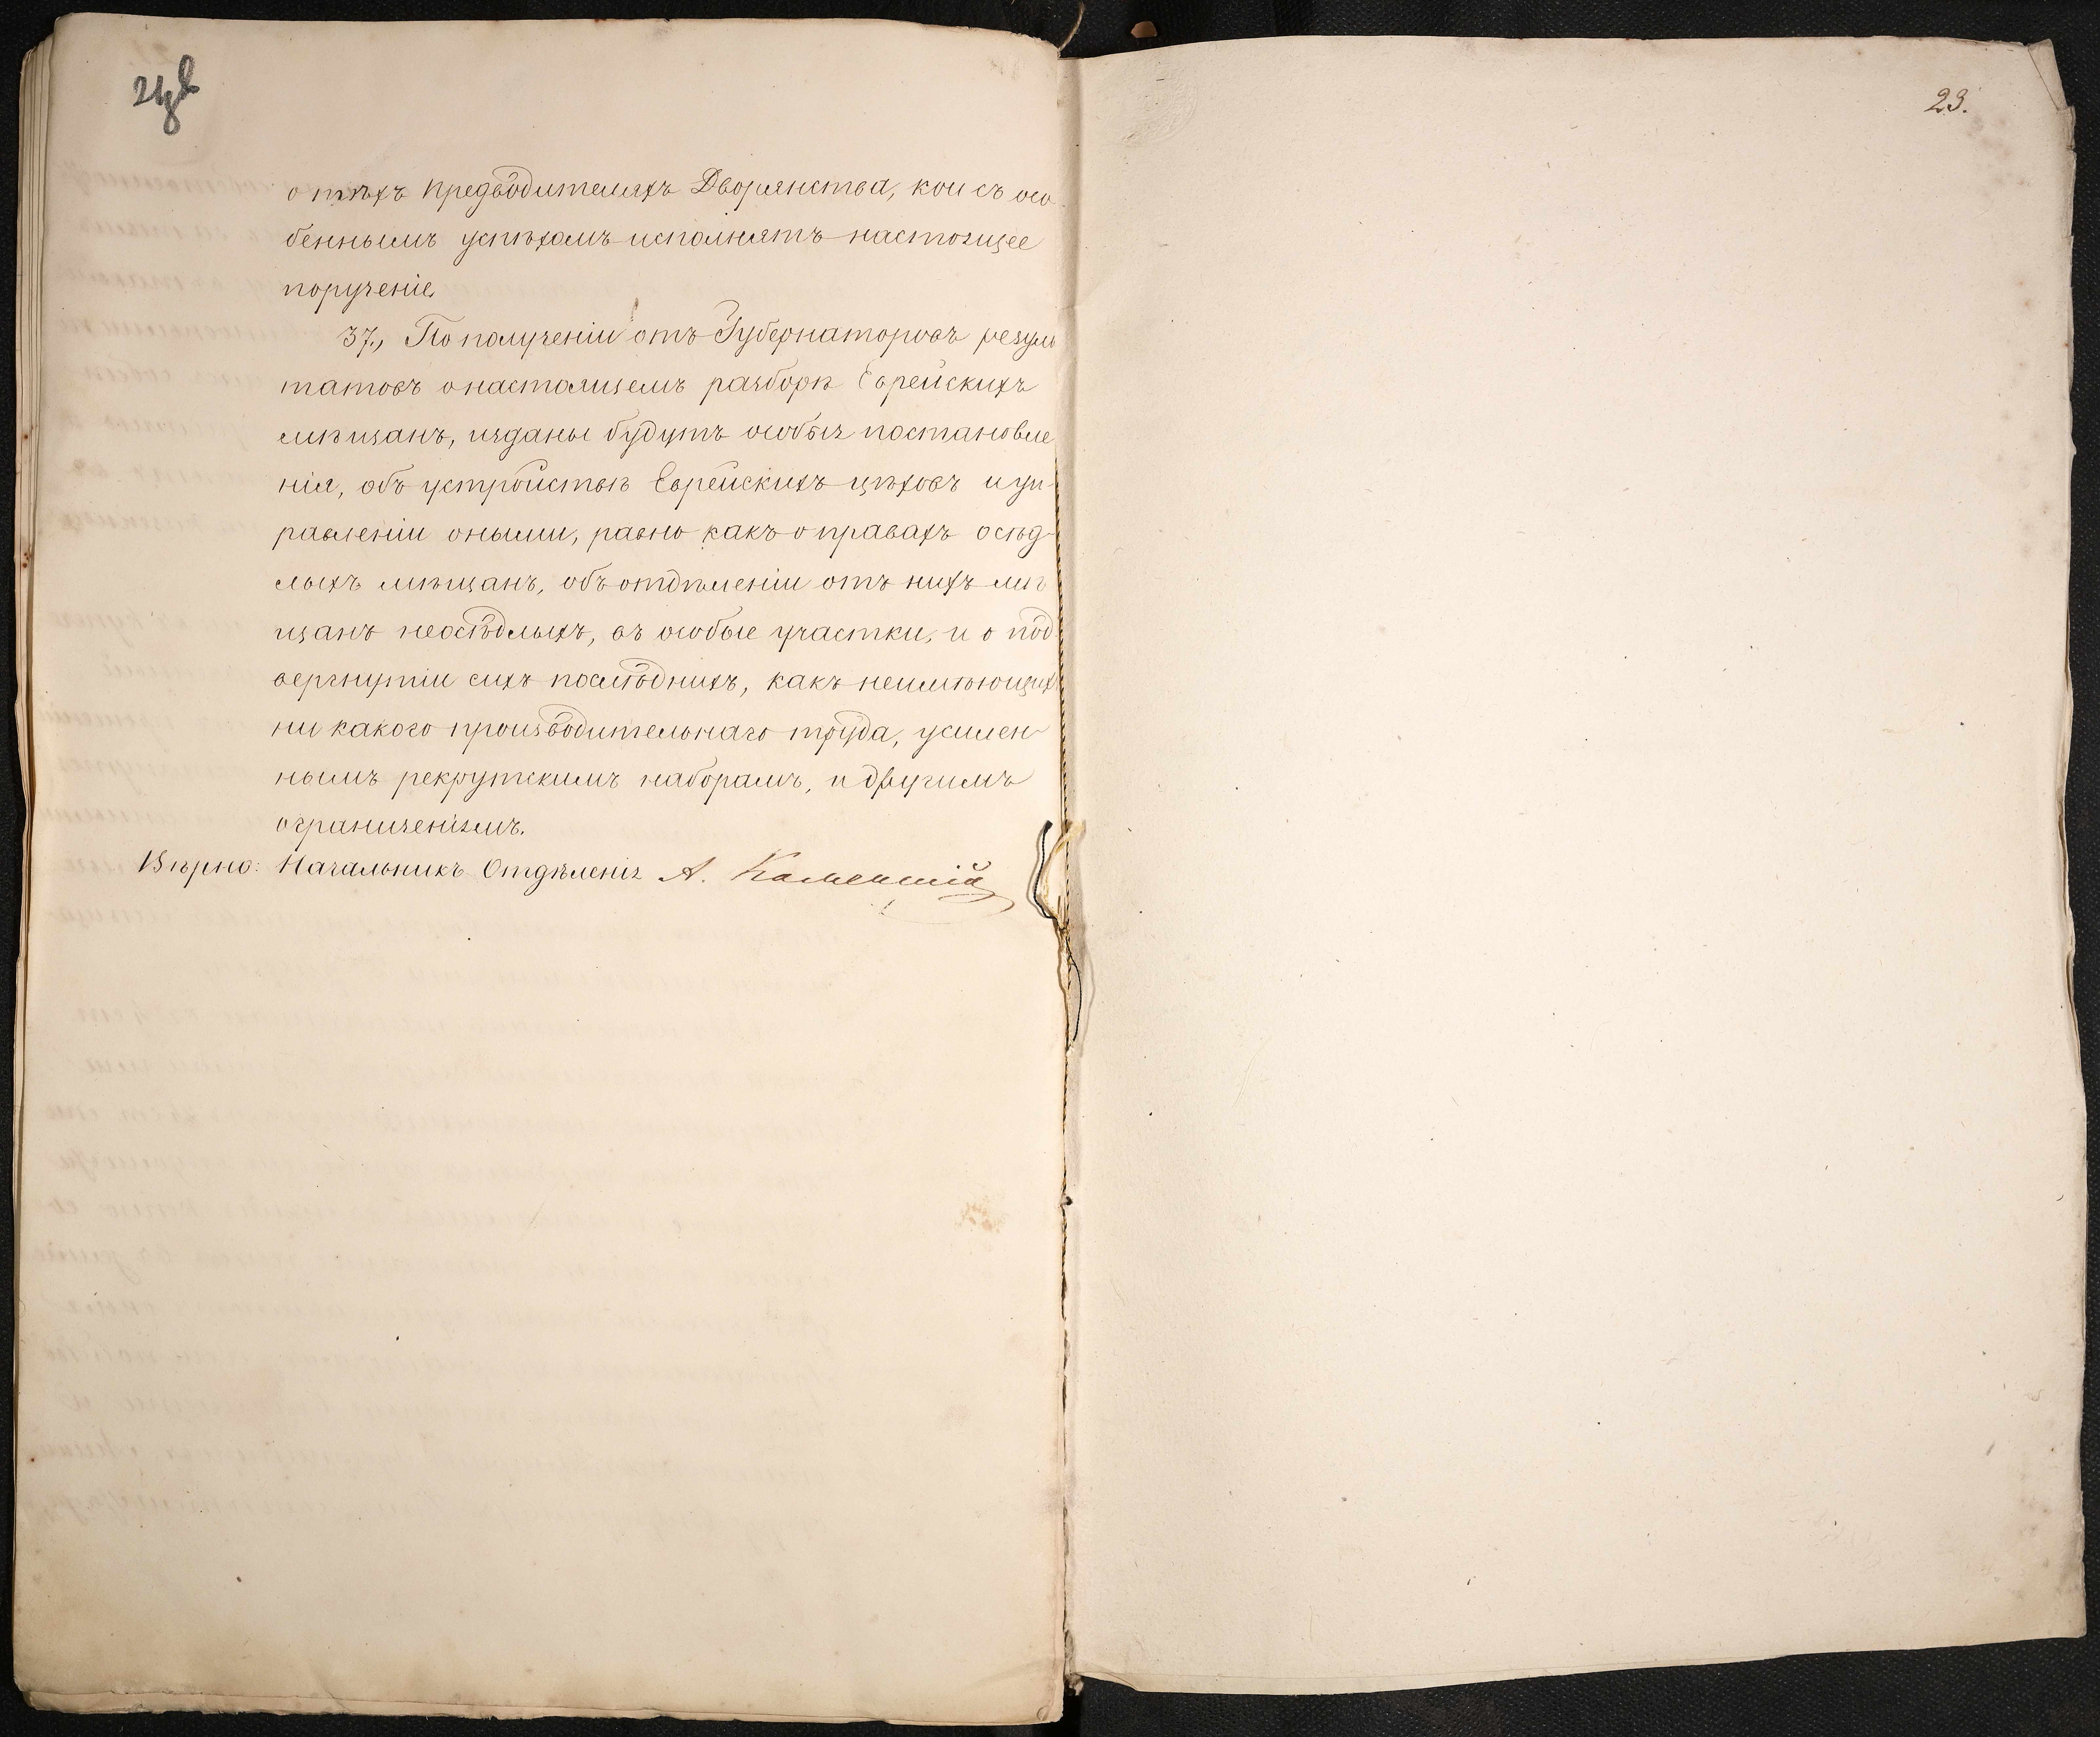 23.
о тѣхъ предводителяхъ Дворянства, кои съ осо
беннымъ успѣхомъ исполнятъ настоящее
порученіе.
37., По полученіи отъ Губернаторовъ резуль
татовъ о настоящемъ разборѣ Еврейскихъ
мѣщанъ, изданы будутъ особыя постановле
нія, объ устройствѣ Еврейскихъ цѣховъ и уп-
равленіи оными, равно какъ о правахъ осѣд-
лыхъ мѣщанъ, объ отдѣленіи отъ нихъ мѣ
щанъ неосѣдлыхъ, въ особые участки, и о под
вергнутіи сихъ послѣднихъ, какъ неимѣющихъ
ни какого производительнаго труда, усилен-
нымъ рекрутскимъ наборамъ, и другимъ
ограниченіямъ.
Вѣрно: Начальникъ Отдѣленія А. Каменскій